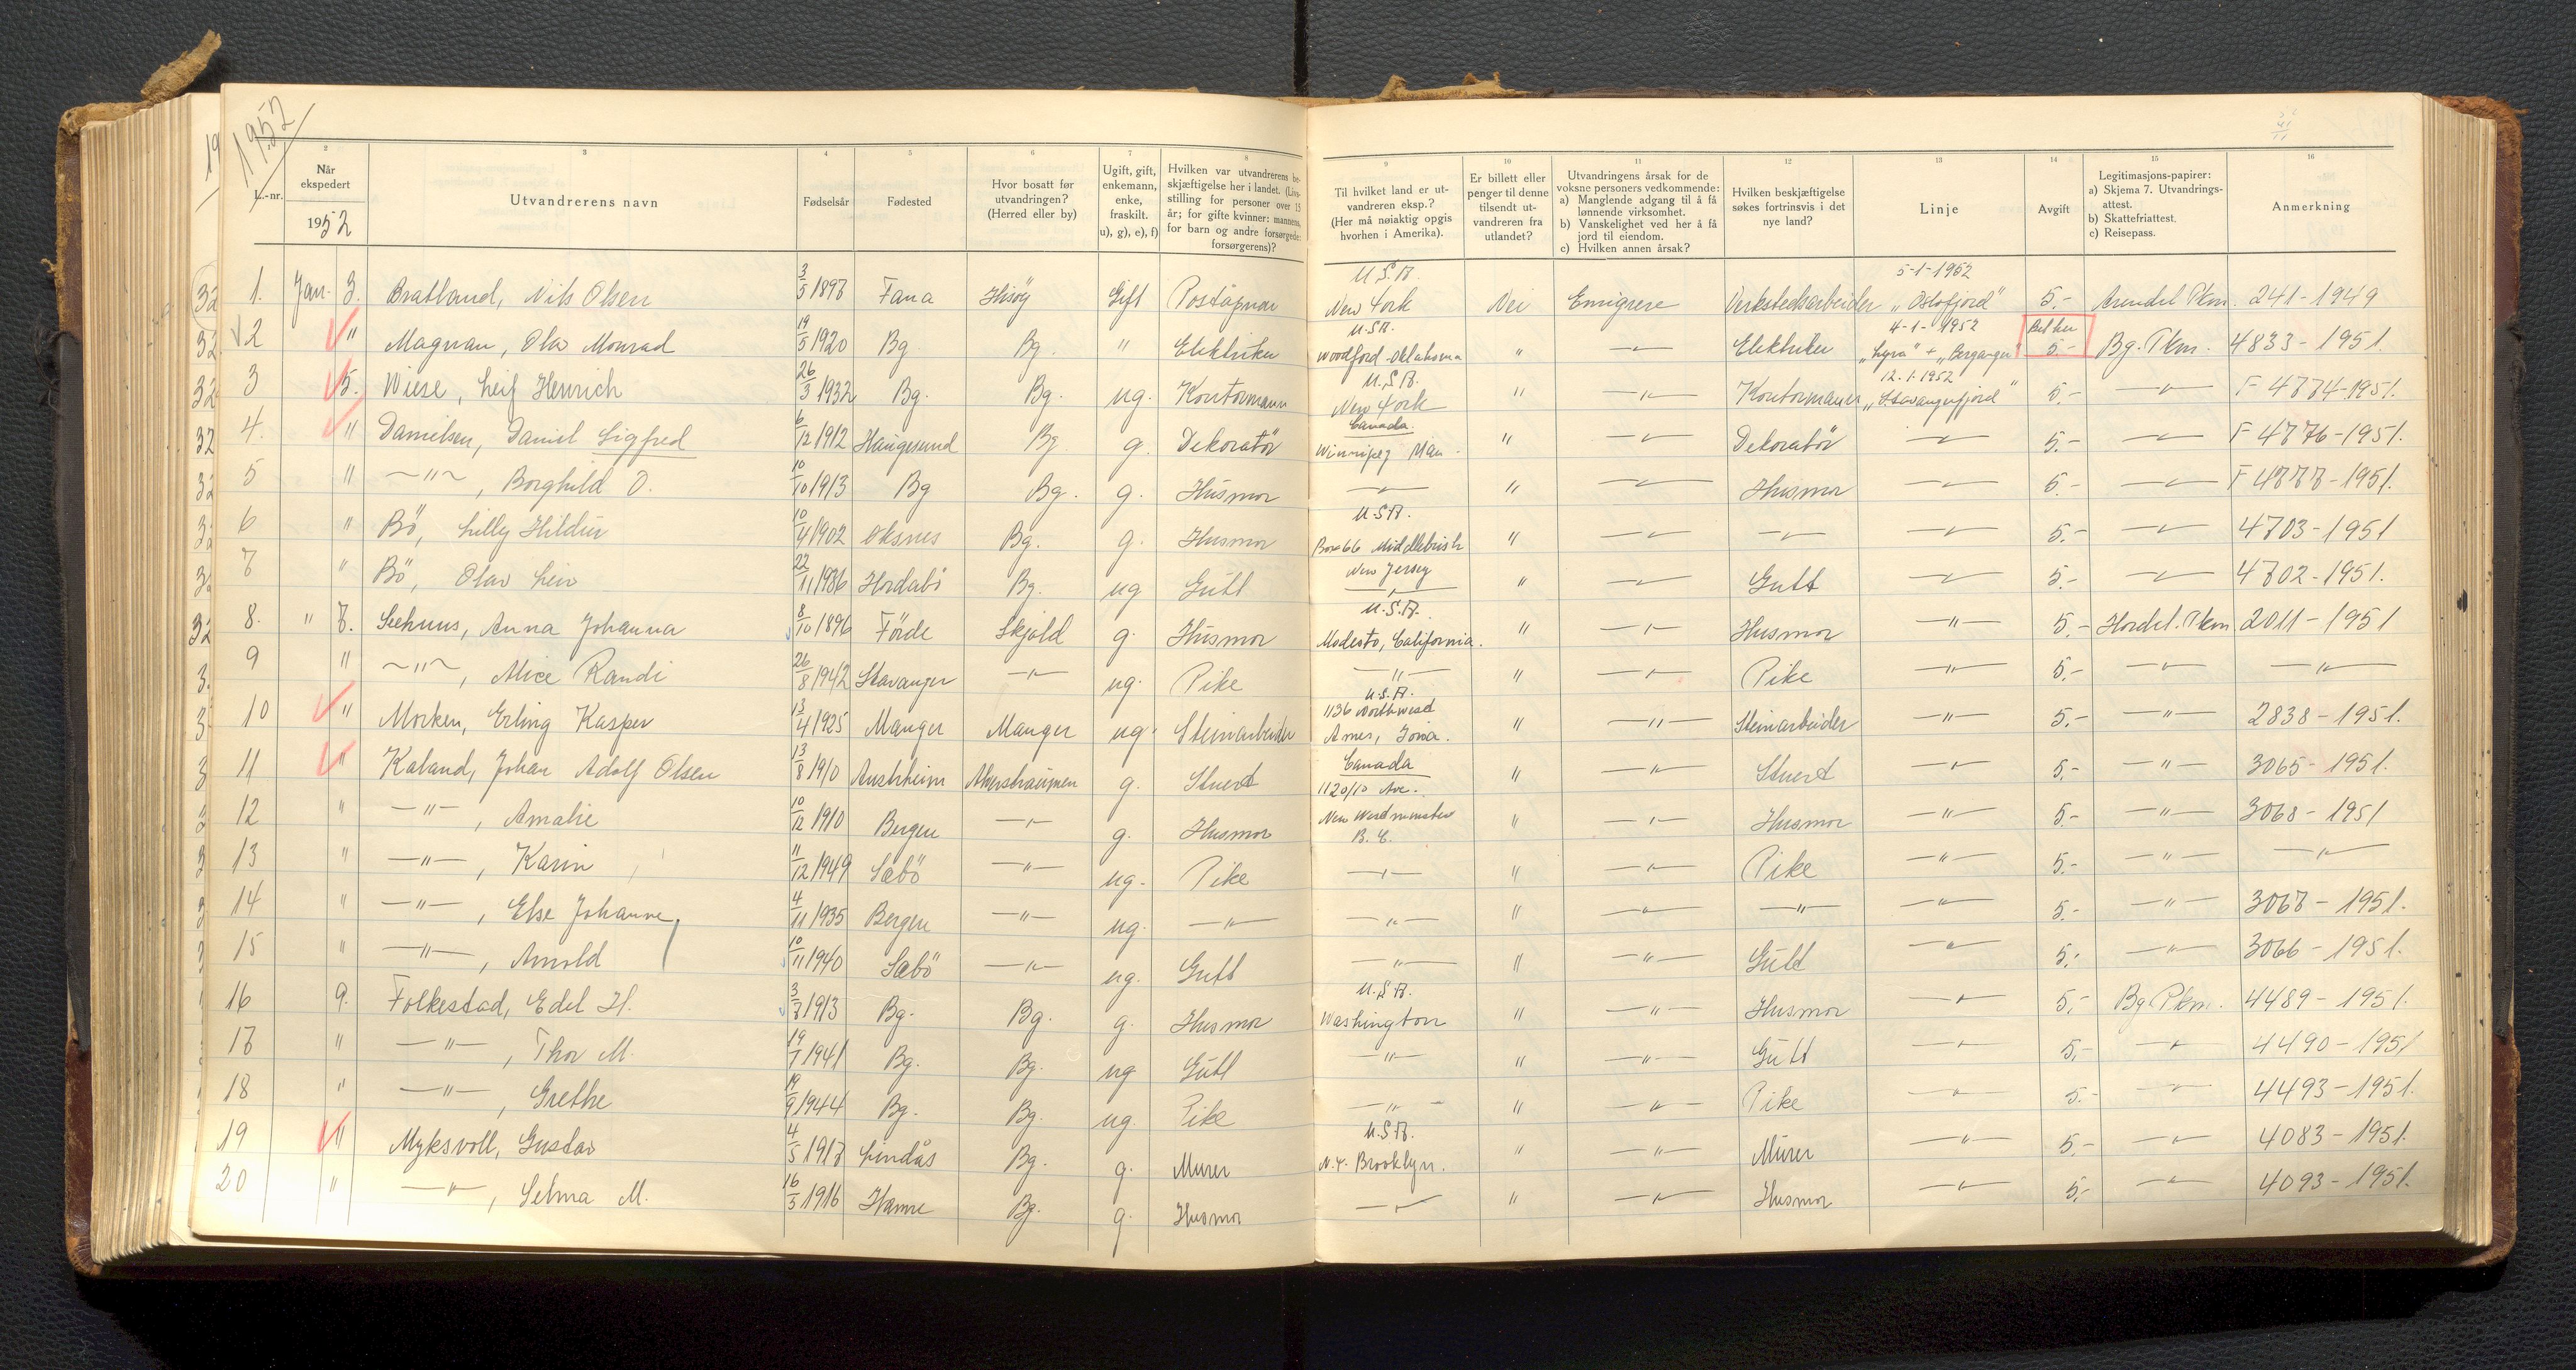 1952
19
1 2 3 4 5 6 7 8 9 10 11 12 13 14 15 16
L.-nr.
Når ekspedert 1952
Utvandrerens navn
Fødselsår
Fødested
Hvor bosatt før utvandringen? (Herred eller by)
Ugift, gift, enkemann, enke, fraskilt. u), g), e), f)
Hvilken var utvandrerens beskjæftigelse her i landet. (Livsstilling for personer over 15 år; for gifte kvinner: mannens, for barn og andre forsørgede: forsørgerens)?
Til hvilket land er utvandreren eksp.? (Her må nøiaktig opgis hvorhen i Amerika).
Er billett eller penger til denne tilsendt utvandreren fra utlandet?
Utvandringens årsak for de voksne personers vedkommende:
a) Manglende adgang til å få lønnende virksomhet.
b) Vanskelighet ved her å få jord til eiendom.
c) Hvilken annen årsak?
Hvilken beskjæftigelse søkes fortrinsvis i det nye land?
Linje
Avgift
Legitimasjons-papirer:
a) Skjema 7. Utvandringsattest.
b) Skattefriattest.
c) Reisepass.
Anmerkning
1. Jan. 3. Bratland, Nils Olsen 3/5 1897 Fana Hisøy Gift Poståpnar U.S.A. New York Nei Emigrere Verkstedsarbeider 5-1-1952 "Oslofjord" 5.- Arendal Pkm. 241-1949
2 " Magnan, Olav Monrad 19/5 1920 Bg. Bg. " Elektriker U.S.A. Woodford Oklahoma " -"- Elektriker 4-1-1952 "Lyra" + "Berganger" 5.- Bg. Pkm. 4833-1951.
3 5. Wiese, Leif Henrich 26/3 1932 Bg. Bg. ug. Kontormann U.S.A. New York " -"- Kontormann 12.1.1952 "Stavangerfjord" 5.- -"- F 4774-1951.
4. " Danielsen, Daniel Sigfred 6/12 1912 Haugesund Bg. g. Dekoratör Canada. Winnipeg Man. " -"- Dekoratör -"- 5.- -"- F 4776-1951.
5 " -"-, Borghild O. 10/10 1913 Bg Bg. g. Husmor -"- " -"- Husmor -"- 5.- -"- F 4777-1951.
6 " Bö, Lilly Hildur 10/4 1902 Oksnes Bg. g. Husmor U.S.A. Box 66 Middlebush " -"- -"- -"- 5.- -"- 4703-1951
7 " Bö, Olav Leiv 22/11 1936 Hordabö Bg. ug Gutt New Jersey -"- " -"- Gutt -"- 5.- -"- 4702-1951.
8. " 7. Seehuus, Anna Johanna 8/10 1896 Förde Skjold g. Husmor U.S.A. Modesto, California. " -"- Husmor -"- 5.- Hordal. Pkm 2011-1951
9 " -"-, Alice Randi 26/8 1942 Stavanger -"- ug. Pike -"- " -"- Pike -"- 5.- -"- -"-
10 " Morken, Erling Kasper 13/4 1925 Manger Manger ug. Steinarbeider U.S.A. 1136 Northwest Ames, Iowa. " -"- Steinarbeider -"- 5.- -"- 2838-1951.
11 " Kaland, Johan Adolf Olsen 13/8 1910 Austrheim Alverstraumen g. Stuert Canada 1120/10 Ave. " -"- Stuert -"- 5.- -"- 3065-1951.
12 " -"-, Amalie 10/12 1910 Bergen -"- g. Husmor New Westminster B.C. " -"- Husmor -"- 5.- -"- 3068-1951
13 " -"-, Karin 11/12 1949 Sæbö -"- ug. Pike -"- " -"- Pike -"- 5.- -"- -"-
14 " -"-, Else Johanne, 4/11 1935 Bergen -"- ug. -"- -"- " -"- -"- -"- 5.- -"- 3067-1951.
15 " -"-, Arnold 10/11 1940 Sæbö -"- ug. Gutt -"- " -"- Gutt -"- 5.- -"- 3066-1951.
16 9. Folkestad, Edel H. 3/7 1913 Bg. Bg. g. Husmor U.S.A. Washington " -"- Husmor -"- 5.- Bg Pkm. 4489-1951.
17 " -"-, Thor M. 19/1 1941 Bg. Bg. ug Gutt -"- " -"- Gutt -"- 5.- -"- 4490-1951
18 " -"-, Grethe 19/9 1944 Bg. Bg. ug. Pike -"- " -"- Pike -"- 5.- -"- 4493-1951.
19 " Myksvoll, Gustav 4/5 1917 Lindås Bg. g. Murer U.S.A. N.Y. Brooklyn. " -"- Murer -"- 5.- -"- 4083-1951.
20 " -"-, Selma M. 16/3 1916 Hamre Bg. g. Husmor -"- " -"- Husmor -"- 5.- -"- 4093-1951.